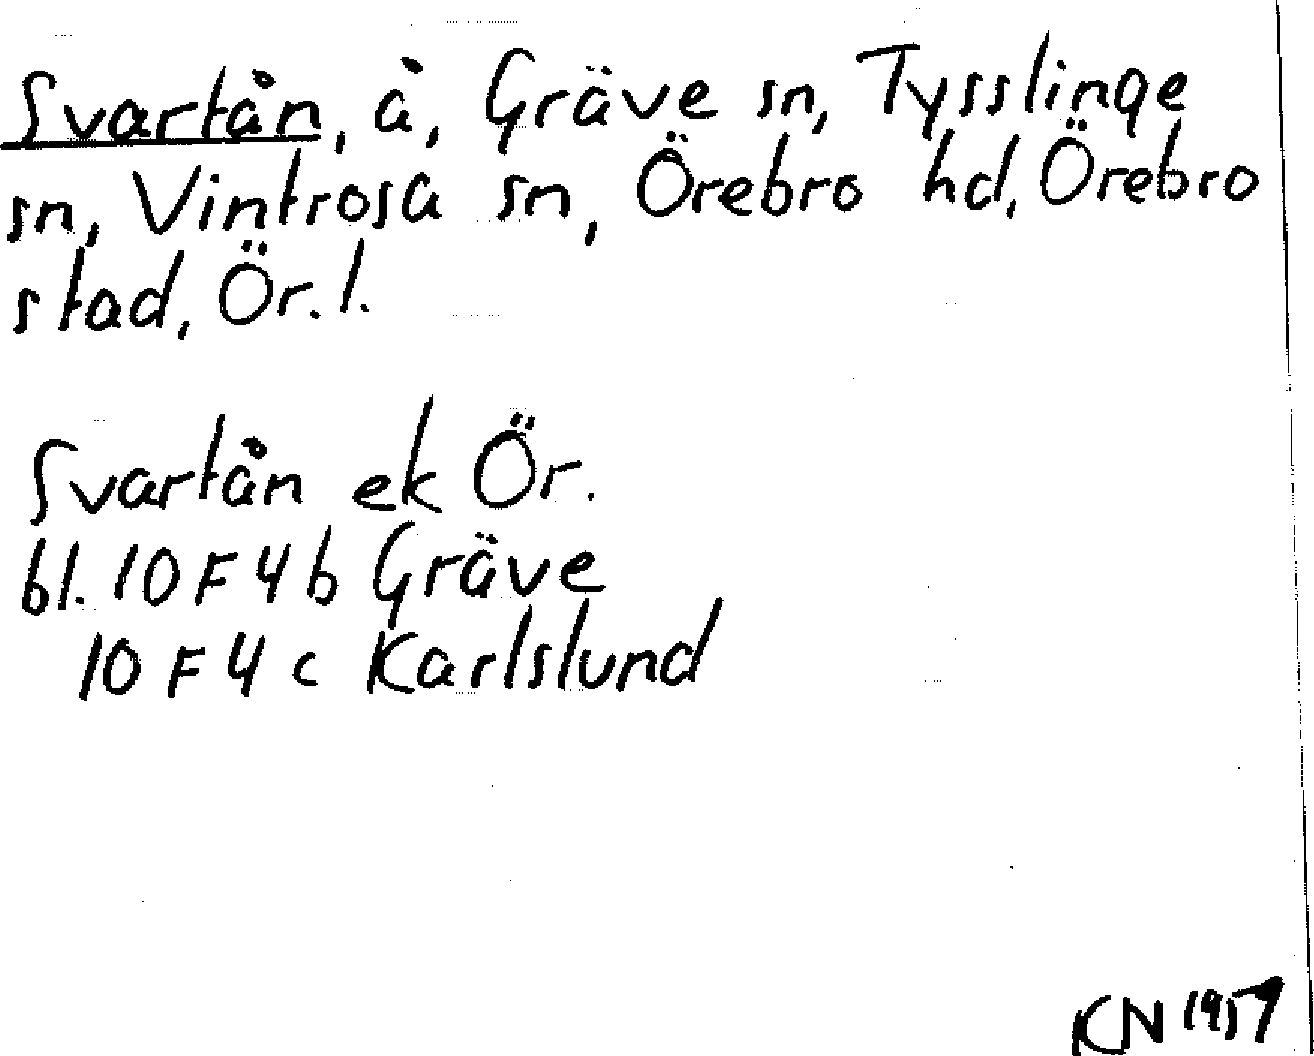 Svartån, å, Gräve sn, Tysslinge
sn, Vintrosa sn, Örebro hd, Örebro
stad, Ör. l.
Svartån ek Ör.
bl. 10 F 4 b Gräve
10 F 4 c Karlslund
KN